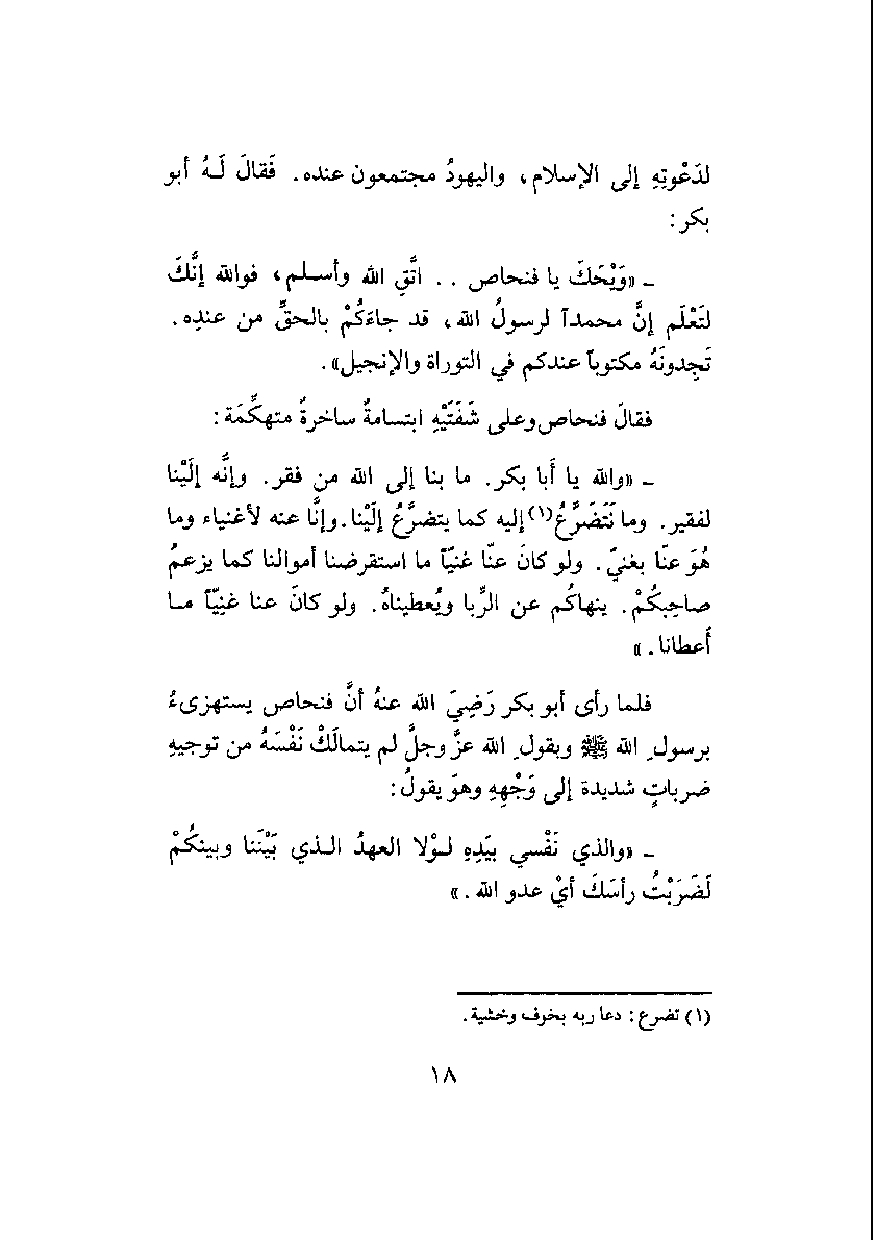 لدَعْوتِهِ إلى الإسلام، واليهودُ مجتمعون عنده. فَقالَ لَـهُ أبو
بكر:
ـ «وَيْحَكَ يا فنحاص . . اتَّقِ الله وأسـلم، فوالله إنَّكَ
لتَعْلَم إنَّ محمدآ لرسولُ الله، قد جاءَكُمْ بالحقِّ من عندِه.
تَجِدونَهُ مكتوباً عندكم في التوراة والإنجيل».
فقالَ فنحاص وعلى شَفَتَيْهِ ابتسامةٌ ساخرةٌ متهكِّمَة:
ـ «والله يا أبا بكر. ما بنا إلى الله من فقر. وإنَّه إلَيْنا
لفقير. وما نَتَضَرَّعُ(١) إليه كما يتضرَّعُ إلَيْنا. وإنَّا عنه لأغنياء وما
هُوَ عنّا بغنيّ. ولو كانَ عنّا غنيّاً ما استقرضنا أموالنا كما يزعمُ
صاحِبكُمْ. ينهاكُم عن الرِّبا ويُعطيناهُ. ولو كانَ عنا غنِيّاً مـا
أعطانا. »
فلما رأى أبو بكر رَضِيَ الله عنهُ أنَّ فنحاص يستهزىءُ
برسولِ الله ﷺ وبقولِ الله عزَّ وجلَّ لم يتمالَكْ نَفْسَهُ من توجيهِ
ضرباتٍ شديدة إلى وَجْهِهِ وهوَ يقولُ:
ـ «والذي نَفْسي بيَدِهِ لـوْلا العهدُ الـذي بَيْنَنا وبينكُمْ
لَضَرَبْتُ رأسَكَ أيْ عدو الله . »
(١) تضرع : دعا ربه بخوف وخشية.
١٨